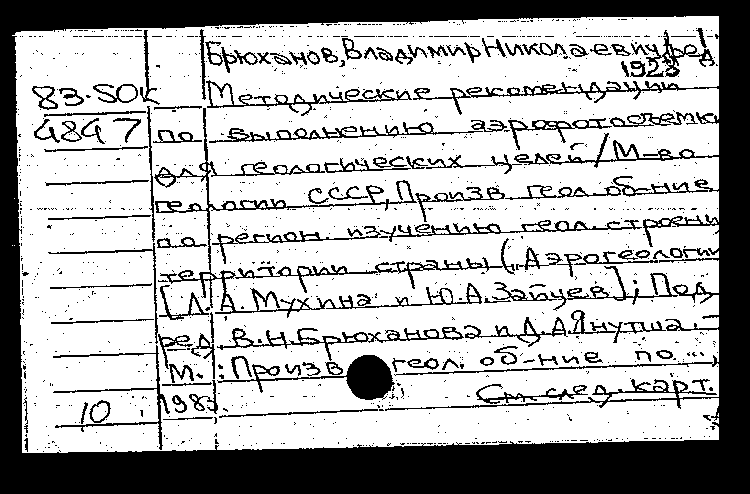 Брюханов, Владимир Николаевич, ред.
1923
83-SOK Методические рекомендации
4847 по выполнению аэрофотосъемки
для геологических целей / М-во
геологии СССР, Произв. геол. об-ние
по регион. изучению геол. строени
территории страны („Аэрогеологии
[Л. А. Мухина и Ю. А. Зайцев]; Под
ред. В. Н. Брюханова и Д. А. Янутша. -
М. : Произв геол. об-ние по ...,
10 1983. См. след. карт.